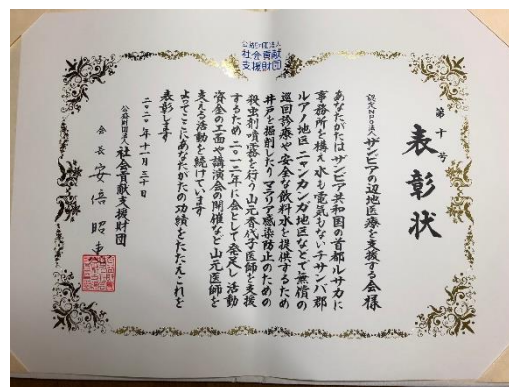 公益財団法人
社会貢献
支援財団
第十号
表彰状
認定NPO法人ザンビアの辺地医療を支援する会様
あなたがたはザンビア共和国の首都ルサカに
事務所を構え水も電気もないチサンバ郡
ルアノ地区ニャンカンガ地区などで無償の
巡回診療や安全な飲料水を提供するため
井戸を掘削したりマラリア感染防止のための
殺虫剤噴霧を行う山元香代子医師を支援
するため二〇一二年に会として発足し活動
資金の工面や講演会の開催など山元医師を
支える活動を続けています
よってここにあなたがたの功績をたたえこれを
表彰します
二〇二〇年十一月三十日
公益財団法人 社会貢献支援財団
会長 安倍昭恵